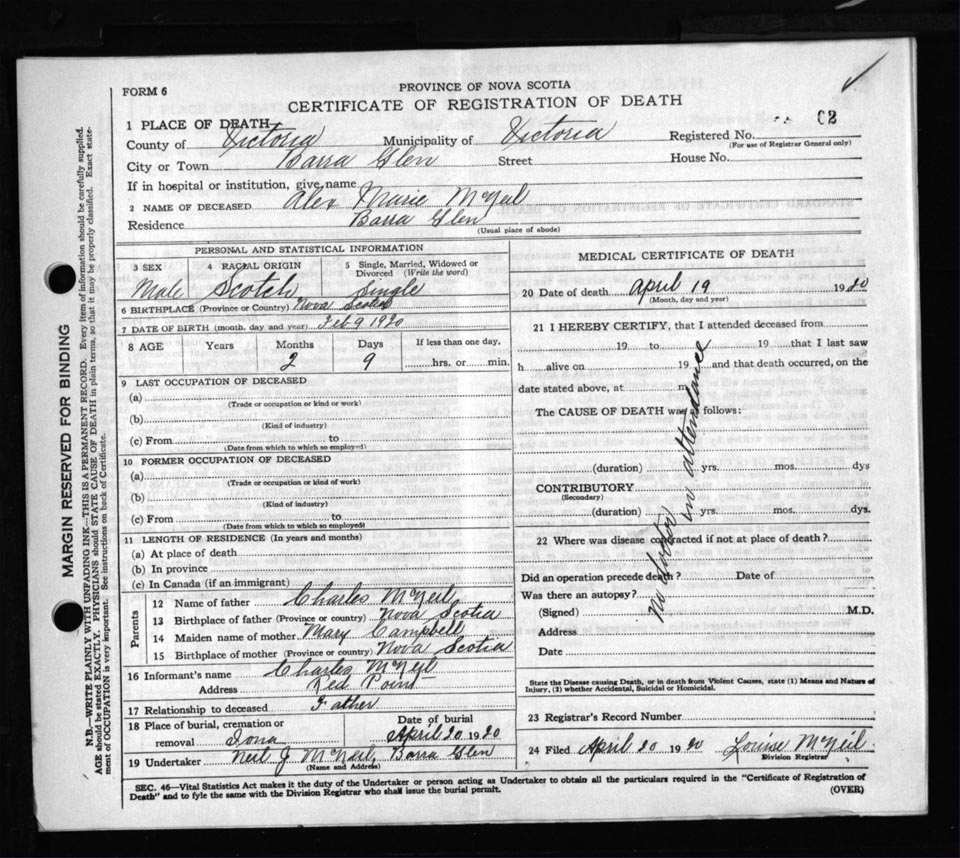 FORM 6
PROVINCE OF NOVA SCOTIA
CERTIFICATE OF REGISTRATION OF DEATH
1 PLACE OF DEATH
County of Victoria Municipality of Victoria Registered No. 02
(For use of Registrar General only)
City or Town Barra Glen Street House No.
If in hospital or institution, give name
2 NAME OF DECEASED Alex Marie McNeil
Residence Barra Glen
(Usual place of abode)
PERSONAL AND STATISTICAL INFORMATION
3 SEX 4 RACIAL ORIGIN 5 Single, Married, Widowed or Divorced (Write the word)
Male Scotch Single
6 BIRTHPLACE (Province or Country) Nova Scotia
7 DATE OF BIRTH (month, day and year) Feb 9 1920
8 AGE Years Months Days If less than one day,
2 9 hrs. or min.
9 LAST OCCUPATION OF DECEASED
(a)
(Trade or occupation or kind or work)
(b)
(Kind of industry)
(c) From to
(Date from which to which so employed)
10 FORMER OCCUPATION OF DECEASED
(a)
(Trade or occupation or kind or work)
(b)
(Kind of industry)
(c) From to
(Date from which to which so employed)
11 LENGTH OF RESIDENCE (In years and months)
(a) At place of death
(b) In province
(c) In Canada (if an immigrant)
Parents
12 Name of father Charles McNeil
13 Birthplace of father (Province or country) Nova Scotia
14 Maiden name of mother Mary Campbell
15 Birthplace of mother (Province or country) Nova Scotia
16 Informant's name Charles McNeil
Address Red Point
17 Relationship to deceased Father
18 Place of burial, cremation or Date of burial
removal Iona April 20 1920
19 Undertaker Neil J McNeil, Barra Glen
(Name and Address)
MEDICAL CERTIFICATE OF DEATH
20 Date of death April 19 1920
(Month, day and year)
21 I HEREBY CERTIFY, that I attended deceased from
19 to 19 that I last saw
h alive on 19 and that death occurred, on the
date stated above, at m
The CAUSE OF DEATH was as follows:
(duration) yrs. mos. dys
CONTRIBUTORY
(Secondary)
(duration) yrs. mos. dys.
22 Where was disease contracted if not at place of death?
Did an operation precede death? Date of
Was there an autopsy?
(Signed) M.D.
Address
Date
no doctor in attendance
State the Disease causing Death, or in death from Violent Causes, state (1) Means and Nature of
Injury, (2) whether Accidental, Suicidal or Homicidal.
23 Registrar's Record Number
24 Filed April 20 1920 Louise McNeil
Division Registrar
SEC. 46—Vital Statistics Act makes it the duty of the Undertaker or person acting as Undertaker to obtain all the particulars required in the "Certificate of Registration of
Death" and to fyle the same with the Division Registrar who shall issue the burial permit.
(OVER)
MARGIN RESERVED FOR BINDING
N.B.—WRITE PLAINLY WITH UNFADING INK—THIS IS A PERMANENT RECORD. Every item of information should be carefully supplied.
AGE should be stated EXACTLY. PHYSICIANS should STATE CAUSE OF DEATH in plain terms, so that it may be properly classified. Exact state-
ment of OCCUPATION is very important. See instructions on back of Certificate.